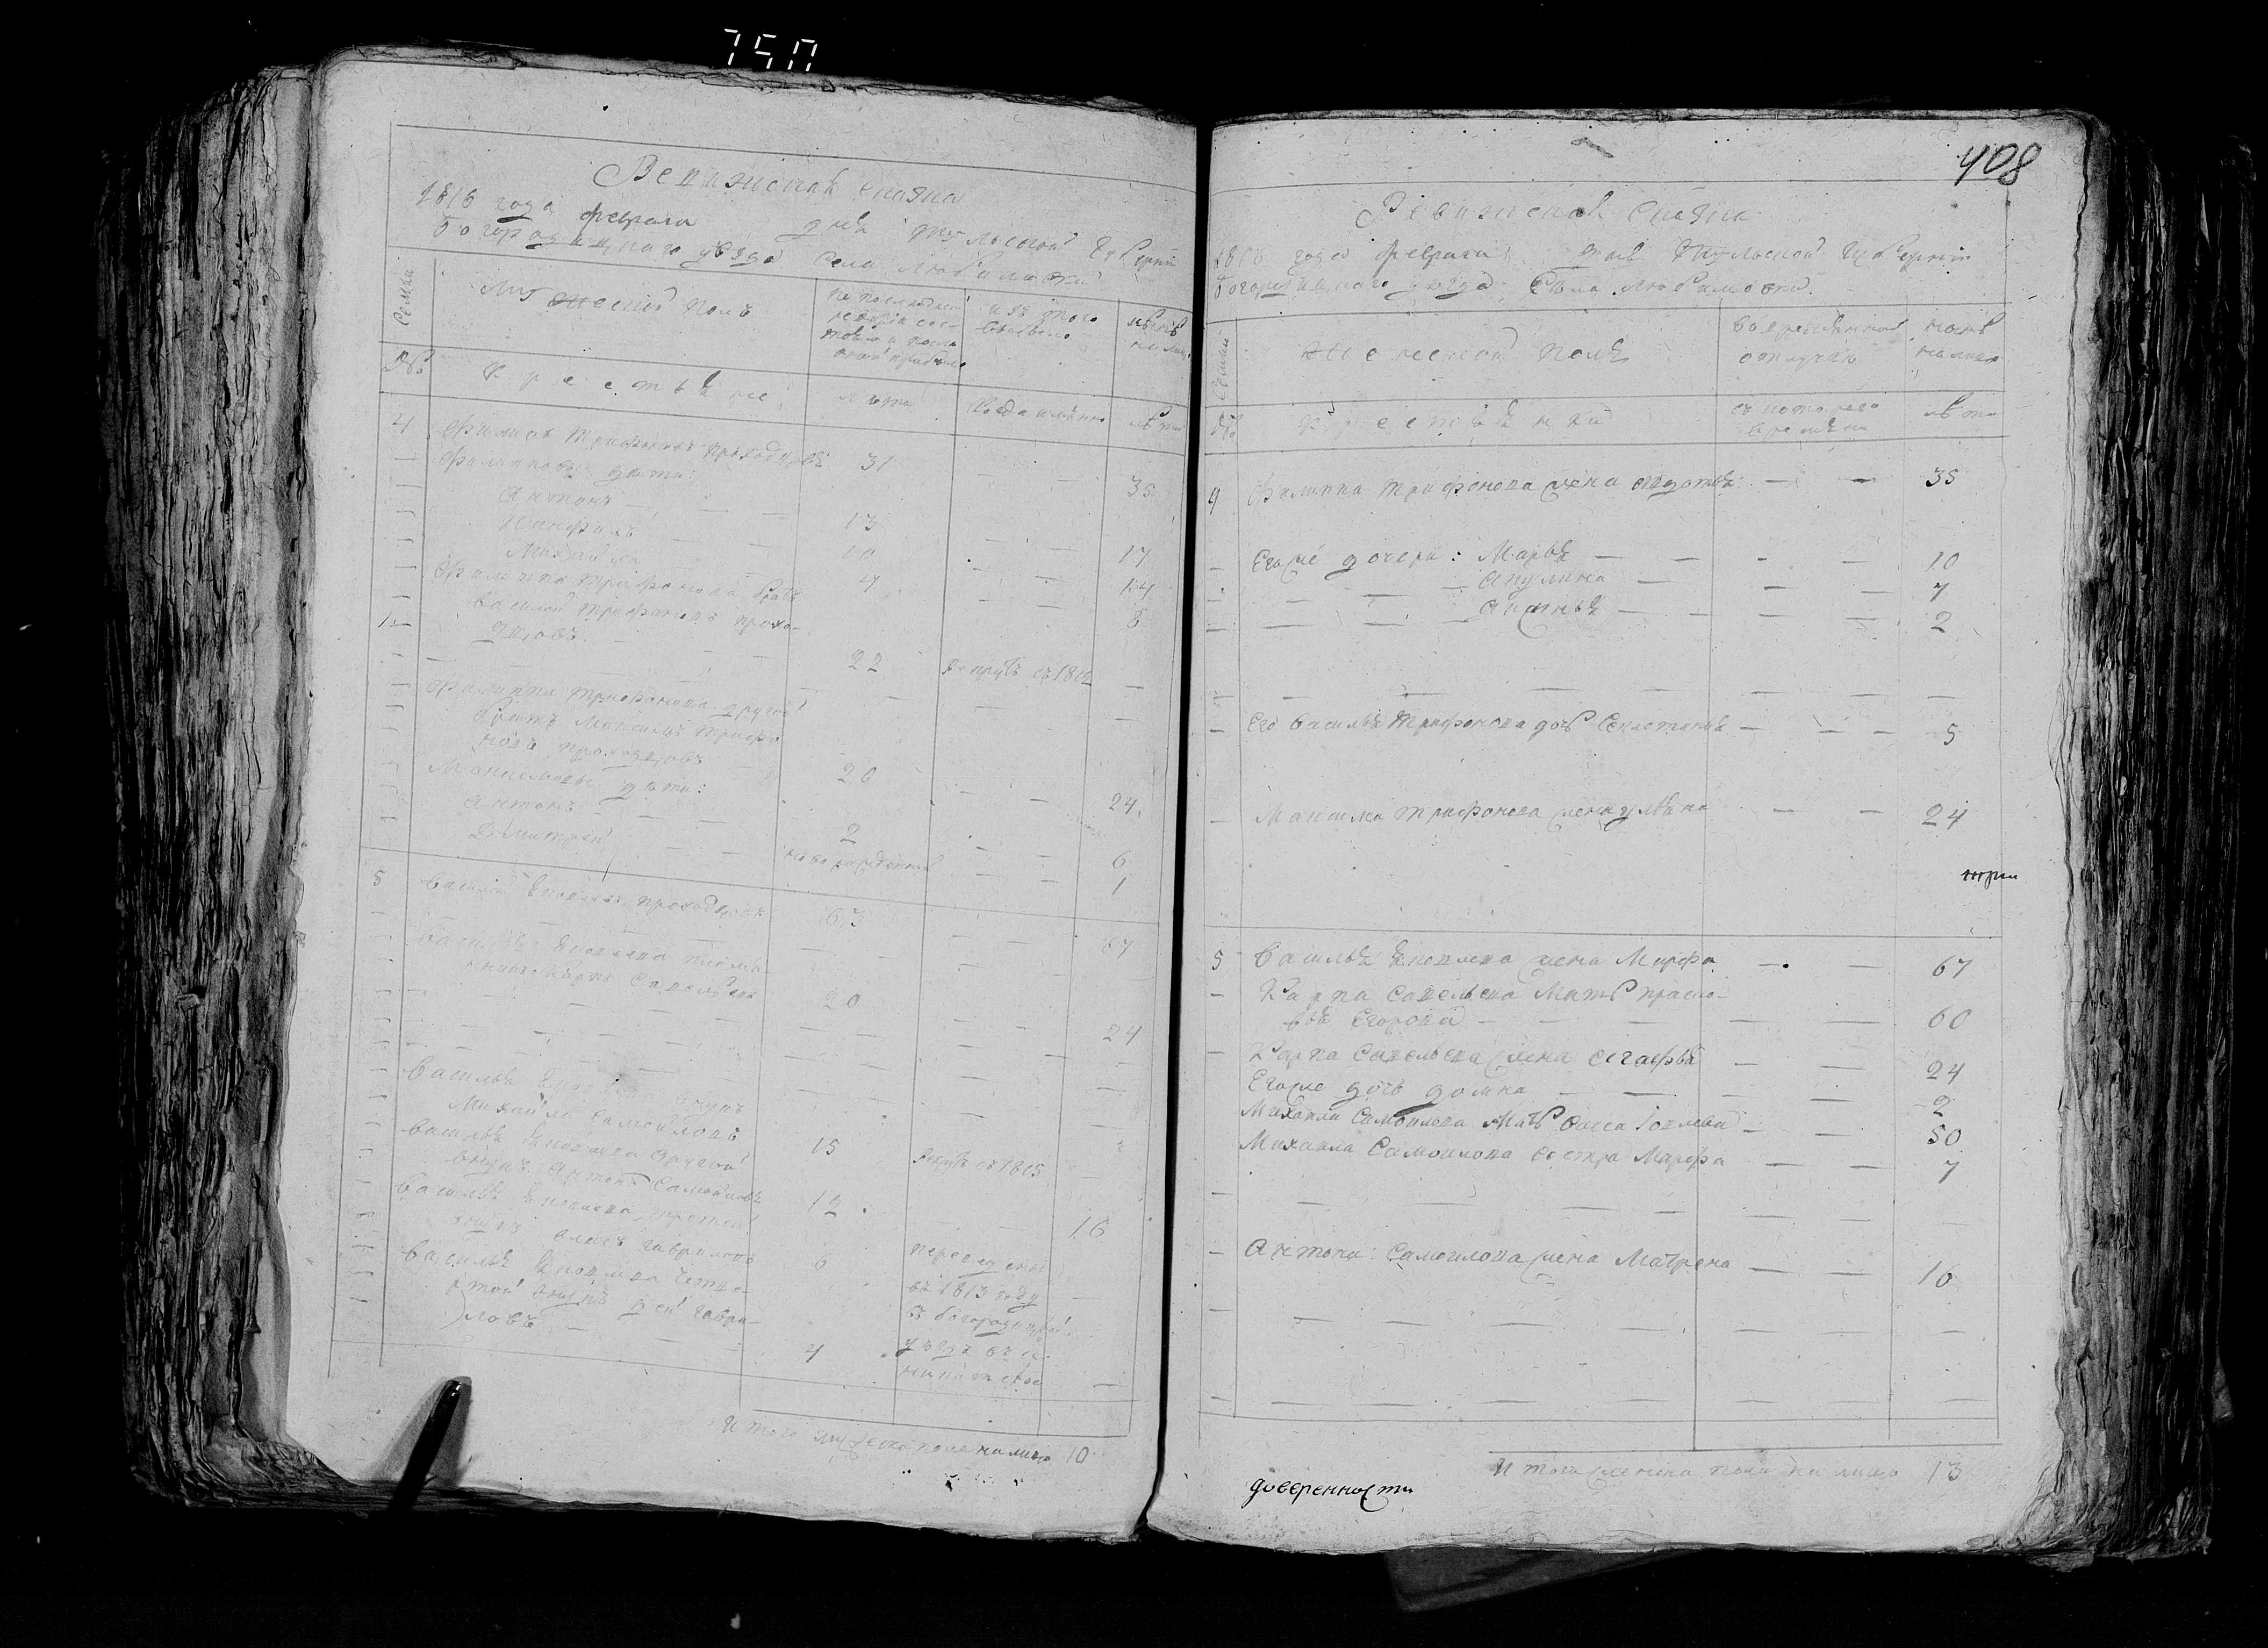 750
Ревижская сказка
1816 года февраля дня Тульской губернии
Богородицкаго уезда Села Любимовки
Семьи
Мужеской полъ
по последней
ревизіи сос-
тояло и посла
оной прибыло
изъ того
выбыло
ныне
на лицо
№
Крестьяне
лета
Когда имянно
лета
4 Филипъ Трифоновъ проходцовъ 31 — — 35
Филиповы дети:
Антонъ — — — 13 — — 17
Панфилъ — — 10 — — 14
Михайла 4 — — 8
Филиппа Трифонова братъ
Василей Трифоновъ прохо-
дцовъ — — — 22 рекрутъ съ 1812 —
Филиппа Трифонова другой
братъ Максимъ Трифо
новъ проходцовъ — 20 — — 24
Максимовы дети:
Антонъ — — — 2 — — 6
Дмитрей — — новорожденной — — 1
5 Василей Яковлевъ проходцовъ 63 — — 67
Василья Яковлева племя-
нникъ Карпъ Савельевъ 20 — — 24
Василья Яковлева внукъ
Михайла Самойловъ 15 рекрутъ съ 1815 —
Василья Яковлева другой
внукъ Антонъ Самойловъ 12 — — 16
Василья Яковлева третей
внукъ Власъ Гавриловъ 6 переведены
въ 1813 году —
Василья Яковлева четве-
ртой внукъ Гаври-
ловъ — — — 4
въ богородицкой
уезд
Итого мужеска пола на лицо 10
408
Ревижская сказка
1816 года февраля дня Тульской губерніи
Богородицкаго уезда Села Любимовки
Семьи
Женской полъ
во временной
отлучке
ныне
на лицо
№
Крестьянки
съ котораго
времени
лета
4 Филиппа Трифонова жена Федотья — — 35
Его же дочери: Марья — — — — 10
— — — Акулина — — — 7
— — — Аксинья — — — 2
Его Василья Трифонова дочь Секлетинья — — — 5
Максима Трифонова жена Ульяна — — 24
5 Василья Яковлева жена Марфа — — 67
Карпа Савельева Мать праско-
вья Егорова — — — — — 60
Карпа Савельева жена Агафья — — 24
Его же дочь домна — — — — 2
Михайла Самойлова Мать Иовлева — — 50
Михаила Самоилова сестра Марфа — — 7
Антона Самоилова жена Матрена — — 16
Итого женска пола на лицо 13
доверенности